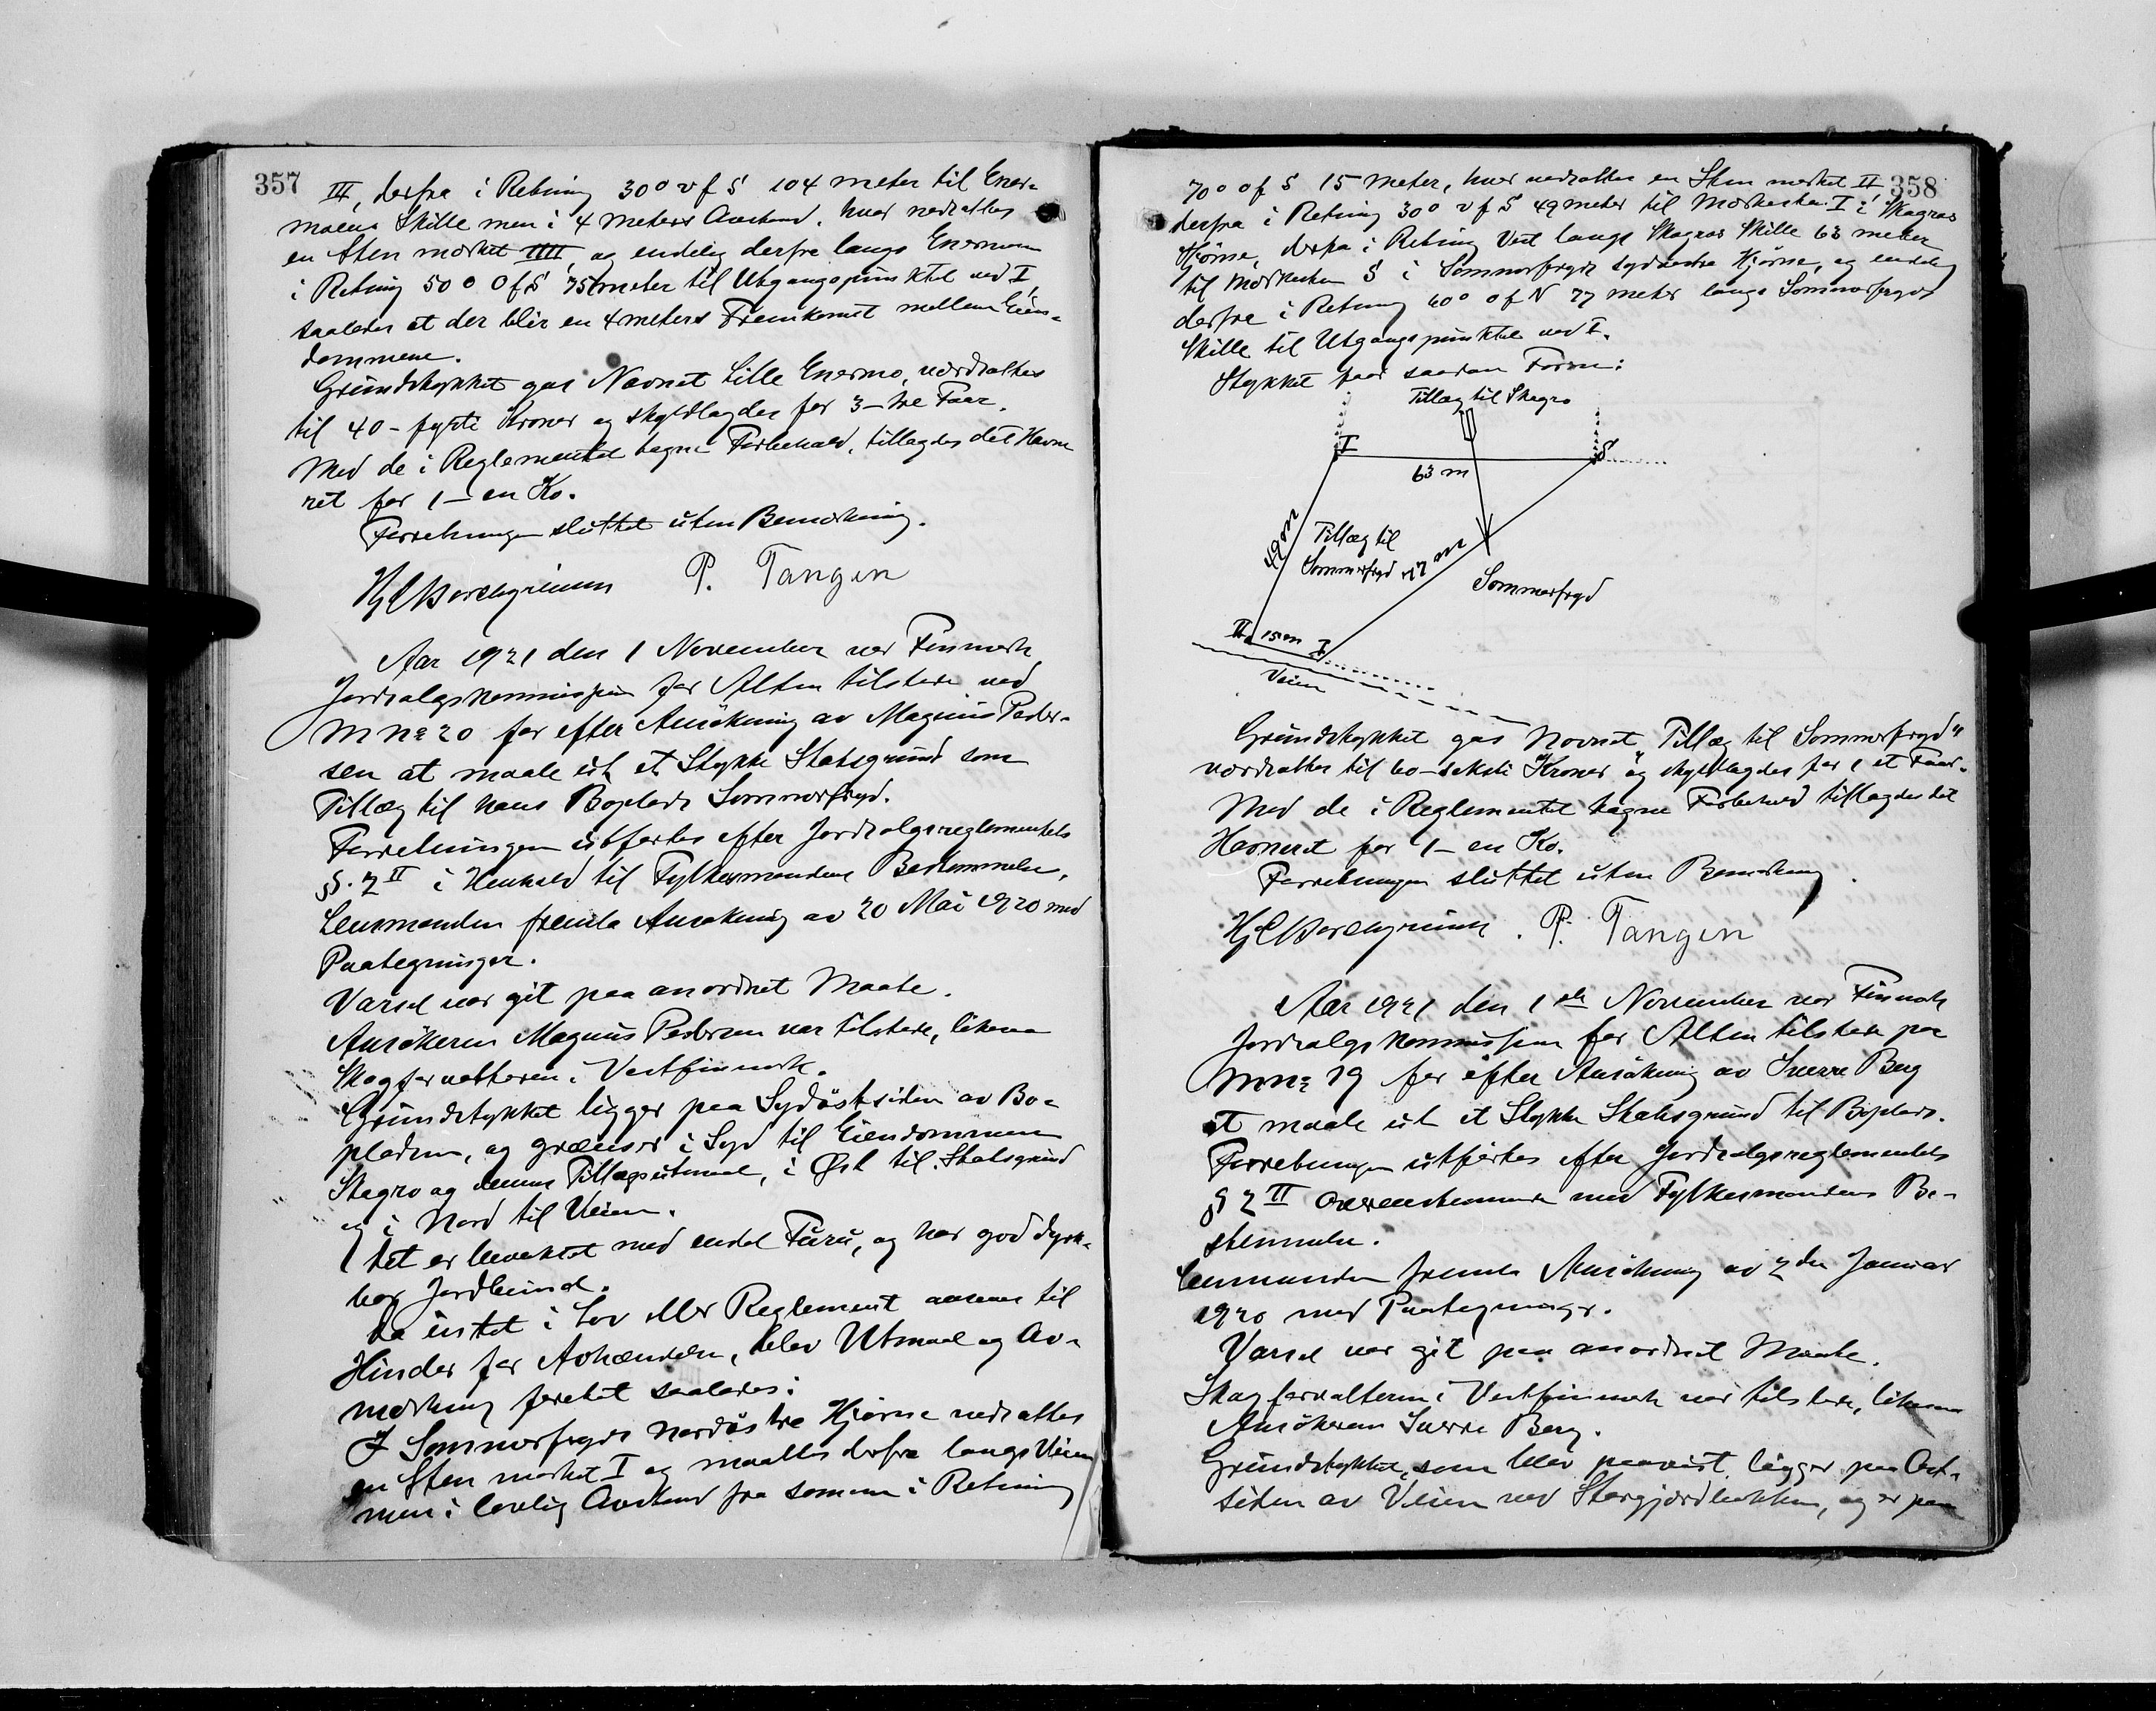 357
III, derfra i Retning 30° v f S 104 meter til Ener-
moens Skille men i 4 meters Avstand, hvor nedsattes
en Sten merket IIII, og endelig derfra langs Enermoen
i Retning 50° O f S 75 meter til Utgangspunktet ved I,
saaledes at der blir en 4 meters Fremkomst mellem Eien-
dommene.
Grundstykket gas Navnet Lille Enermo, værdsattes
til 40 - fyrti Kroner og skyldlagdes for 3 - tre Faar.
Med de i Reglementet tagne Forbehold, tillagdes det Havne
ret for 1 - en Ko.
Forretningen sluttet uten Bemerkning.
P. Tangen
Aar 1921 den 1 November var Finmark
Jordsalgskommission for Alten tilstede ved
M No 20 for efter Ansøkning av Magnus Peder-
sen at maale ut et Stykke Statsgrund som
Tillæg til hans Boplads Sommerfryd.
Forretningen utførtes efter Jordsalgsreglementets
§. 2 II i Henhold til Fylkesmandens Bestemmelse.
Lensmanden fremla Ansøkning av 20 Mai 1920 med
Paategninger.
Varsel var git paa anordnet Maate.
Ansøkeren Magnus Pedersen var tilstede, likesaa
Skogforvalteren i Vestfinmark.
Grundstykket ligger paa Sydøstsiden av Bo-
pladsen, og grænser i Syd til Eiendommen
Skogro og dennes Tillægsutmaal, i Øst til Statsgrund
og i Nord til Veien.
Det er bevokset med endel Furu, og har god dyrk-
bar Jordbund.
Da intet i Lov eller Reglement ansaaes til
Hinder for Avhændelse, blev Utmaal og Av-
merkning foretat saaledes:
I Sommerfryds nordøstre Hjørne nedsattes
en Sten merket I og maaltes derfra langs Veien
men i lovlig Avstand fra samme i Retning
358
70° o f S 15 meter, hvor nedsattes en Sten merket II,
derfra i Retning 30° v f S 49 meter til Merkesten I i Skogros
Hjørne, derfra i Retning Vest langs Skogros Skille 63 meter
til Merkesten S i Sommerfryds sydvestre Hjørne, og endelig
derfra i Retning 60° o f N 77 meter langs Sommerfryds
Skille til Utgangspunktet ved I.
Stykket faar saadan Form:
Tillæg til Skogro
I
S
63 m
49 m
Tillæg til
Sommerfryd
77 m
Sommerfryd
II 15 m I
Veien
Grundstykket gas Navnet "Tillæg til Sommerfryd"
værdsattes til 60 - seksti Kroner og skyldlagdes for 1 et Faar.
Med de i Reglementet tagne Forbehold tillagdes det
Havneret for 1 - en Ko.
Forretningen sluttet uten Bemerkning.
P. Tangen
Aar 1921 den 1ste November var Finmark
Jordsalgskommission for Alten tilstede paa
M No 19 for efter Ansøkning av Sverre Berg
at maale ut et Stykke Statsgrund til Boplads.
Forretningen utførtes efter Jordsalgsreglementets
§ 2 II overensstemmende med Fylkesmandens Be-
stemmelse.
Lensmanden fremla Ansøkning av 2den Januar
1920 med Paategninger.
Varsel var git paa anordnet Maate.
Skogforvalteren i Vestfinmark var tilstede, likesaa
Ansøkeren Sverre Berg.
Grundstykket, som blev paavist, ligger paa Øst-
siden av Veien ved Storgjordbakken, og er paa